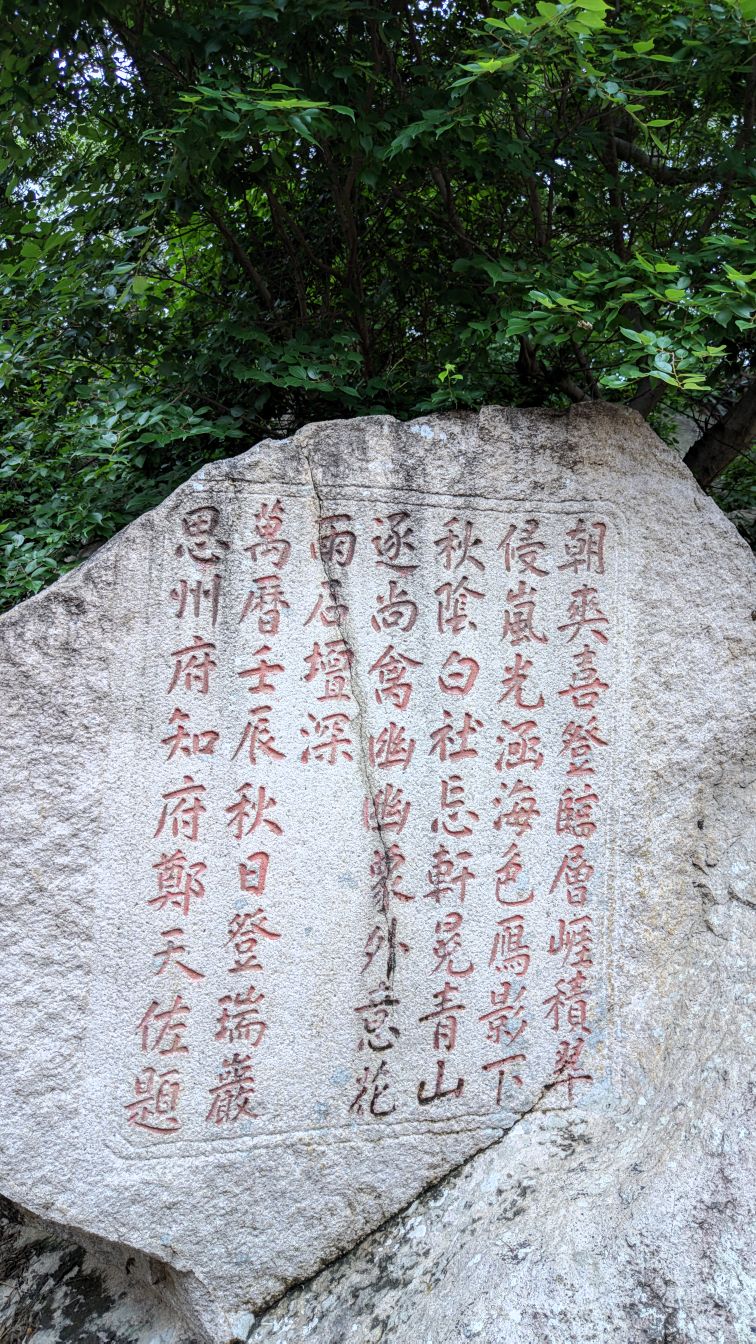 朝爽喜登臨層崕積翠
侵嵐光涵海色鴈影下
秋陰白社忘軒冕青山
逐尚禽幽幽象外意花
雨石壇深
萬曆壬辰秋日登瑞巖
思州府知府鄭天佐題